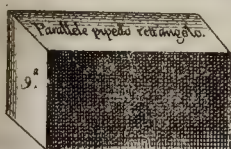 Parallele pipedo rettangolo.
9.ª